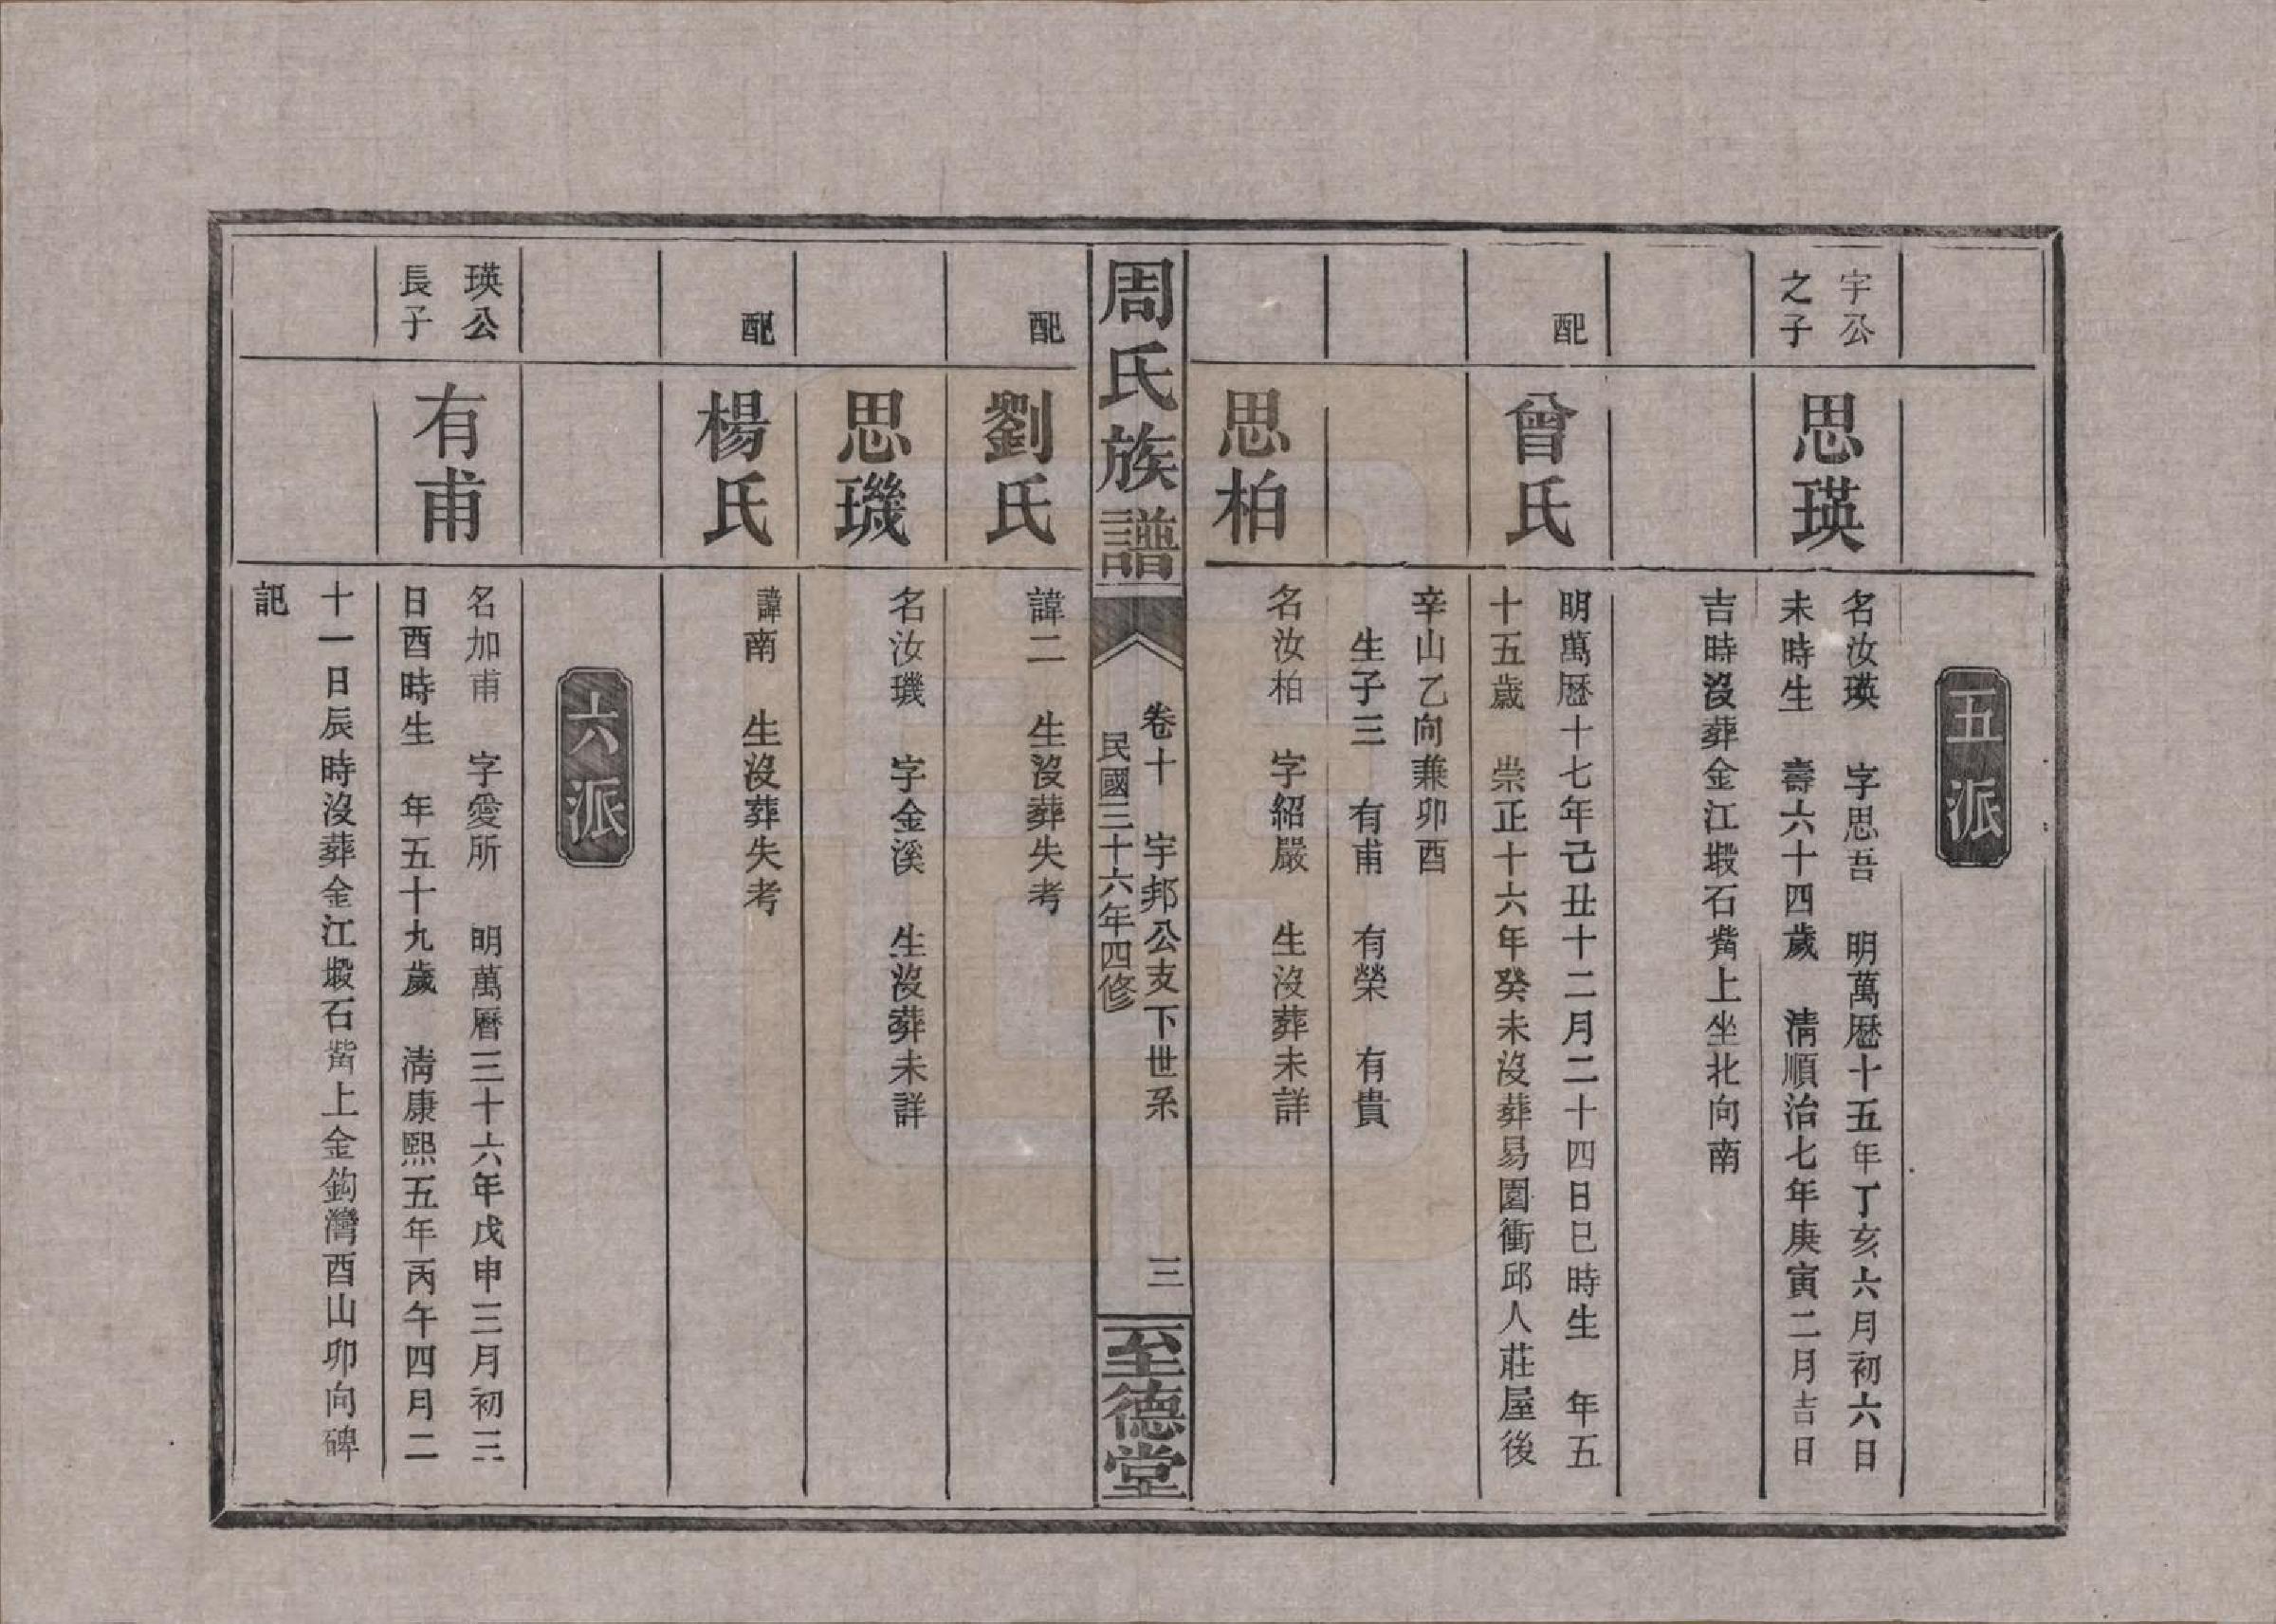 五派
宇公
之子
思瑛
名汝瑛　字思吾　明萬曆十五年丁亥六月初六日
未時生　壽六十四歲　淸順治七年庚寅二月吉日
吉時沒葬金江塅石觜上坐北向南
配
曾氏
明萬曆十七年己丑十二月二十四日巳時生　年五
十五歲　崇正十六年癸未沒葬易園衝邱人莊屋後
辛山乙向兼卯酉
生子三　有甫　有榮　有貴
思柏
名汝柏　字紹嚴　生沒葬未詳
周氏族譜
卷十　宇邦公支下世系
民國三十六年四修
三
至德堂
配
劉氏
諱二　生沒葬失考
思璣
名汝璣　字金溪　生沒葬未詳
配
楊氏
諱南　生沒葬失考
六派
瑛公
長子
有甫
名加甫　字愛所　明萬曆三十六年戊申三月初三
日酉時生　年五十九歲　淸康熙五年丙午四月二
十一日辰時沒葬金江塅石觜上金鈎灣酉山卯向碑
記